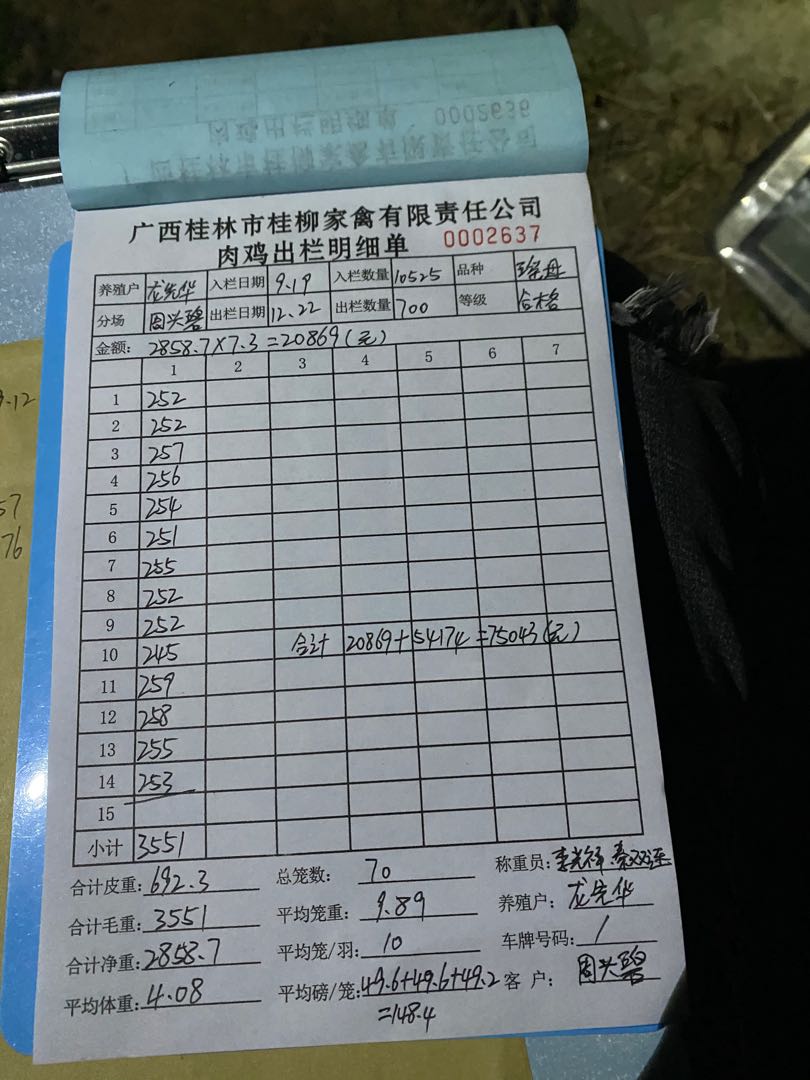 肉鸡出栏明细单 0002636
广西桂林市桂柳家禽有限责任公司
广西桂林市桂柳家禽有限责任公司
肉鸡出栏明细单 0002637
养殖户 龙先华 入栏日期 9.19 入栏数量 10525 品种
分场 周头碧 出栏日期 12.22 出栏数量 700 等级 合格
金额: 2858.7×7.3=20869(元)
1 2 3 4 5 6 7
1 252
2 252
3 257
4 256
5 254
6 251
7 255
8 252
9 252
10 245 合计 20869+54174=75043(元)
11 259
12 258
13 255
14 253
15
小计 3551
合计皮重: 692.3 总笼数: 70 称重员:
合计毛重: 3551 平均笼重: 9.89 养殖户: 龙先华
合计净重: 2858.7 平均笼/羽: 10 车牌号码: 1
平均体重: 4.08 平均磅/笼: 49.6+49.6+49.2 客户: 周头碧
=148.4
9.12
57
76